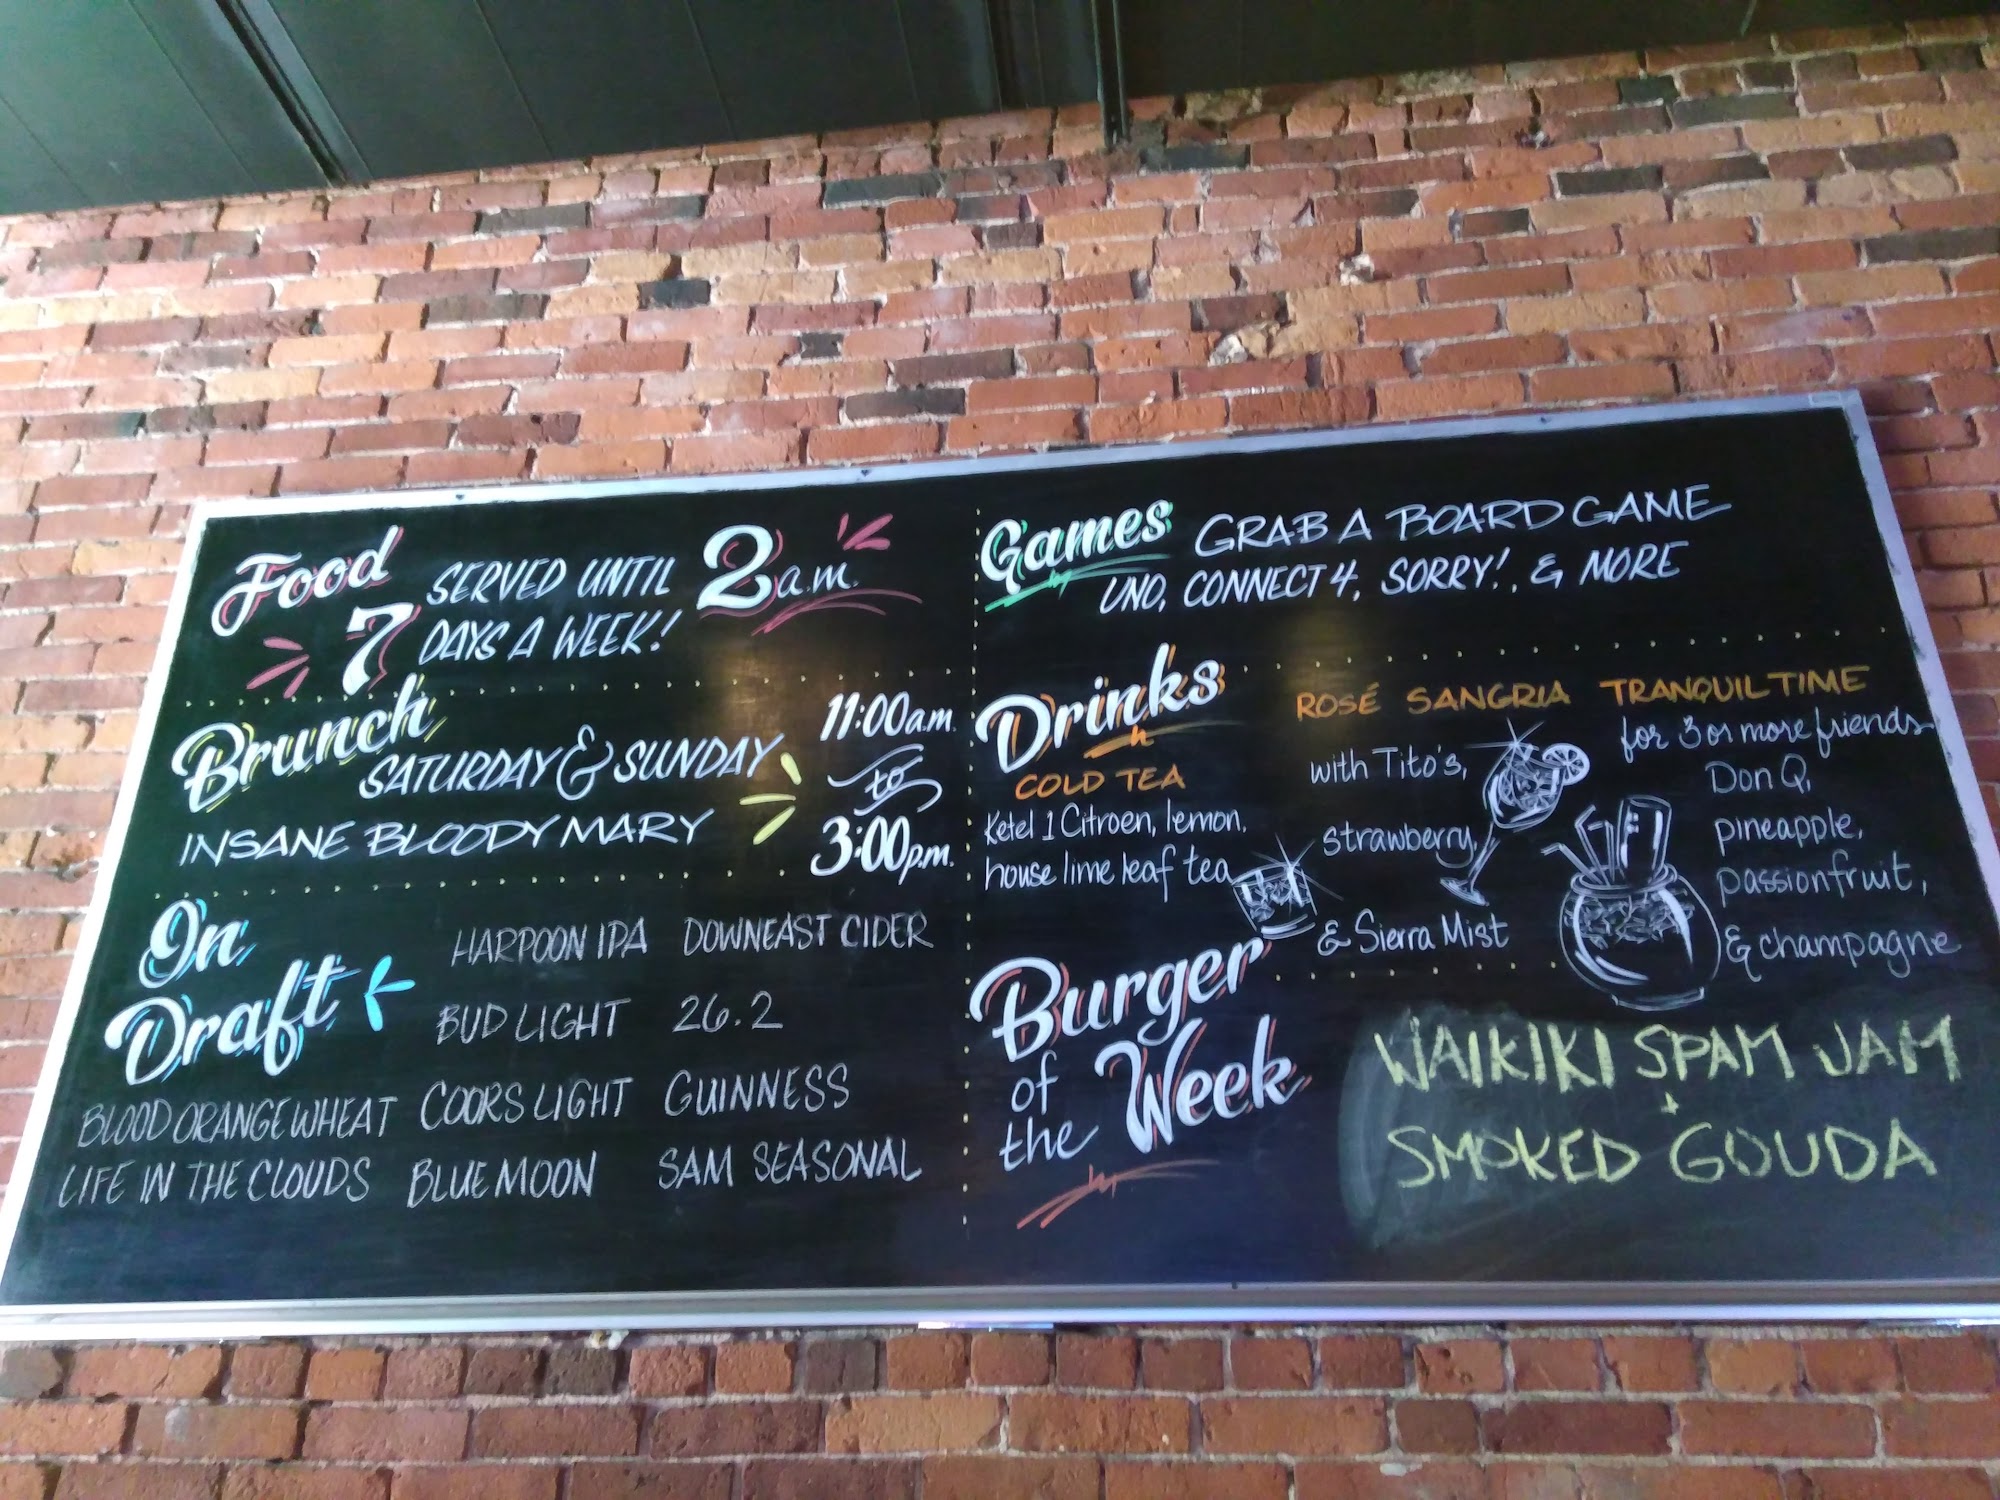 Food SERVED UNTIL 2 a.m.
7 DAYS A WEEK!
Brunch
SATURDAY & SUNDAY
INSANE BLOODY MARY
11:00 a.m.
to
3:00 p.m.
On
Draft
HARPOON IPA DOWNEAST CIDER
BUD LIGHT 26.2
BLOOD ORANGE WHEAT COORS LIGHT GUINNESS
LIFE IN THE CLOUDS BLUE MOON SAM SEASONAL
Games GRAB A BOARD GAME
UNO, CONNECT 4, SORRY!, & MORE
Drinks
COLD TEA
Ketel 1 Citroen, lemon,
house lime leaf tea
ROSÉ SANGRIA
with Tito's,
strawberry,
& Sierra Mist
TRANQUIL TIME
for 3 or more friends
Don Q,
pineapple,
passionfruit,
& champagne
Burger
of
the Week
WAIKIKI SPAM JAM
+
SMOKED GOUDA